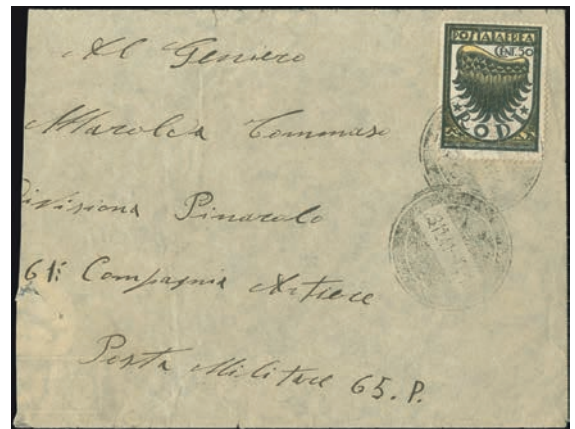 POSTA AEREA
CENT. 50
RODI
Al Geniere
Marolda Tommaso
Divisiona Pinarolo
61ª Compagnia Artiere
Posta Militare 65. P.